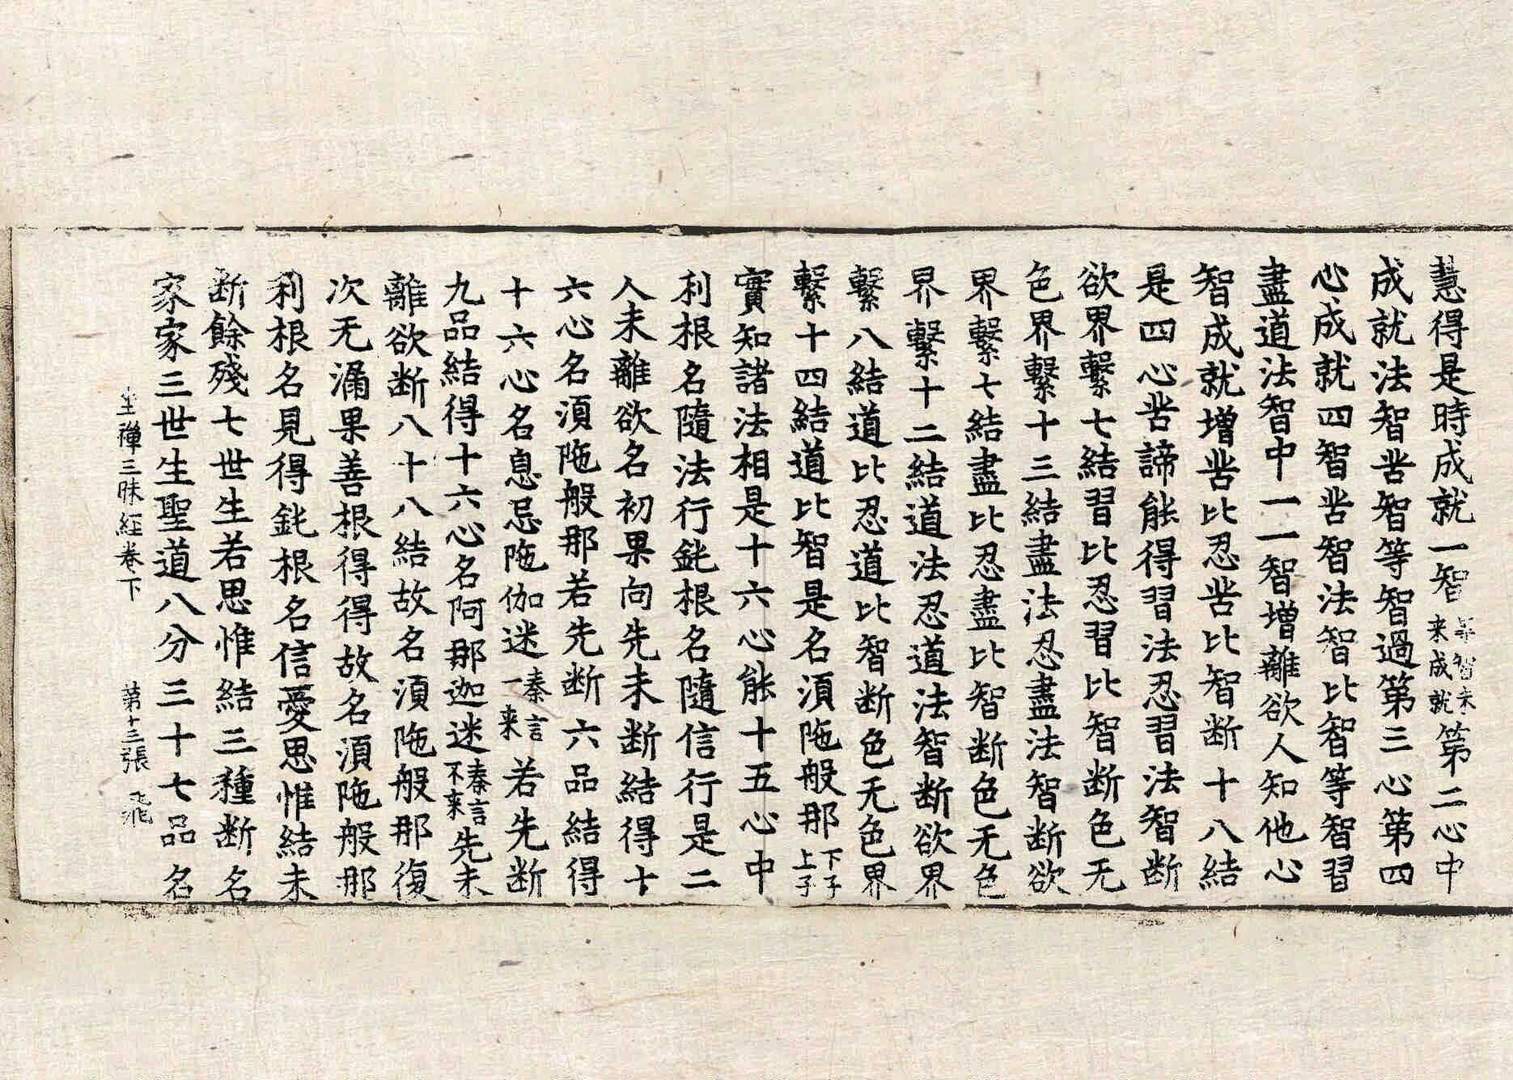 慧得是時成就一智等智未来成就第二心中
成就法智苦智等智過第三心第四
心成就四智苦智法智比智等智習
盡道法智中一一智增離欲人知他心
智成就增苦比忍苦比智断十八結
是四心苦諦能得習法忍習法智断
欲界繫七結習比忍習比智断色无
色界繫十三結盡法忍盡法智断欲
界繫七結盡比忍盡比智断色无色
界繫十二結道法忍道法智断欲界
繫八結道比忍道比智断色无色界
繫十四結道比智是名湏陁般那下子上子
實知諸法相是十六心能十五心中
利根名隨法行鈍根名隨信行是二
人未離欲名初果向先未断結得十
六心名湏陁般那若先断六品結得
十六心名息忌陁伽迷秦言一来若先断
九品結得十六心名阿那迦迷秦言不来先未
離欲断八十八結故名湏陁般那復
次无漏果善根得得故名湏陁般那
利根名見得鈍根名信愛思惟結未
断餘殘七世生若思惟結三種断名
家家三世生聖道八分三十七品名
坐禪三昧経卷下 第十三張 飛